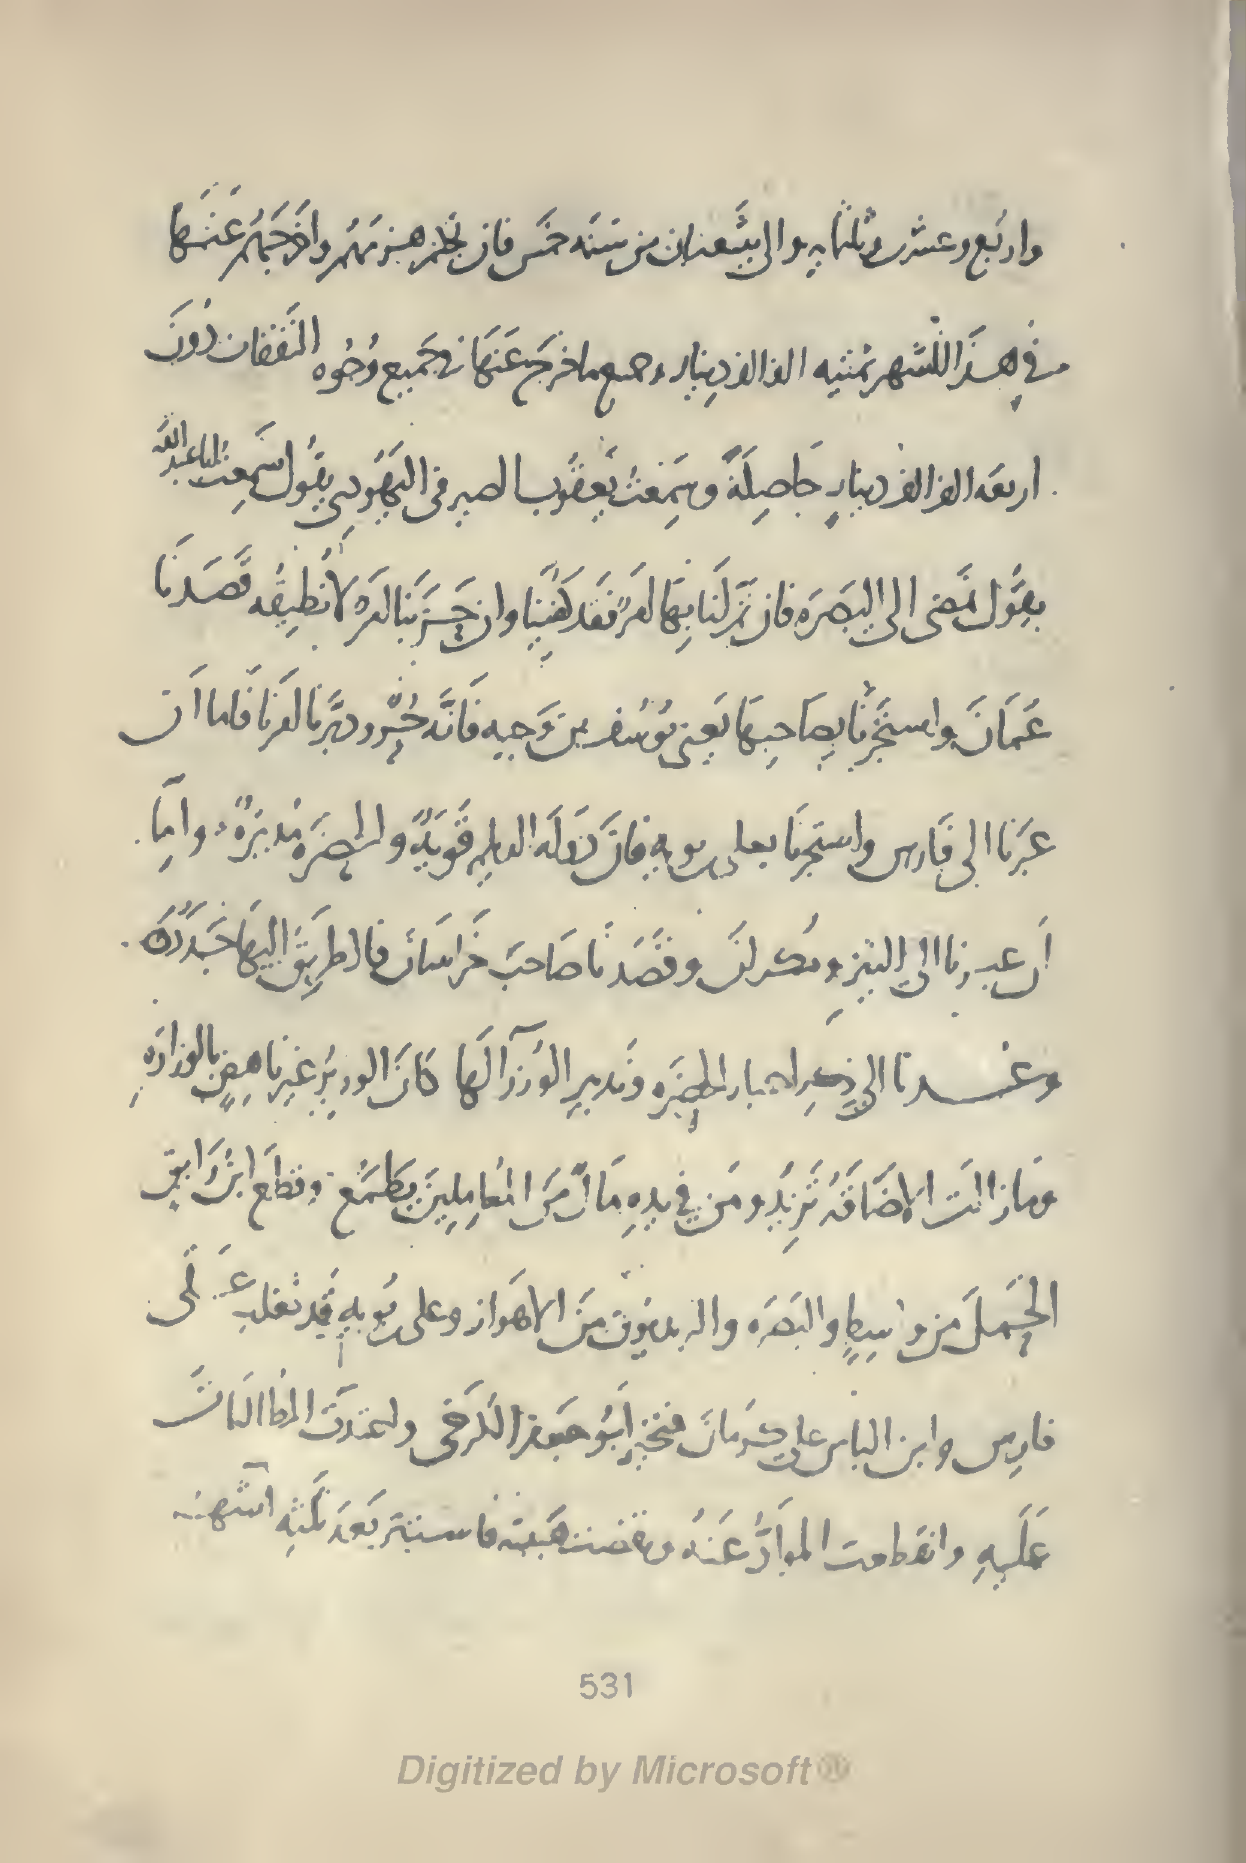 واربع وعشرين وثلثمايه والى شعبان من سنه خمس فان لحقهم هزيمهم واخراجهم عنها
في هذا الشهر ثمنيه الف الف دينار وجميع ما خرج عنها في جميع وجوه النفقات دون
اربعه الف الف دينار حاصلة وسمعت يعقوب الصيرفي اليهودي يقول سمعت ابا عبد الله
يقول نمضي الى البصره فان تم لنا بها امر فقد كفينا وان حزبنا امر لا نطيقه قصدنا
عمان واستجرنا بصاحبها يعني يوسف بن وجيه فانه حر ودبرنا امرنا فاما ان
عبرنا الى فارس واستجرنا بعلي بن بويه فان دوله الديلم قويه والحضره مدبره واما
ان عبرنا الى التيز ومكران وقصدنا صاحب خراسان فالطريق اليها جدده
وعدنا الى ذكر اخبار الحضره وتدبير الوزرآ لها كان الوزير غير ناهض بالوزاره
وما زالت الاضاقه تزيد ومن في يده مال من المعاملين يطمع وقطع ابن رايق
الحمل من واسط والبصره والبريديون من الاهواز وعلى بن بويه قد تغلب على
فارس وابن الياس على كرمان فتحير ابو جعفر الكرخي واعتدت المطالبات
عليه وانقطعت المواد عنه ونقصت هيبته فاستتر بعد ثلثه اشهر
531
Digitized by Microsoft®